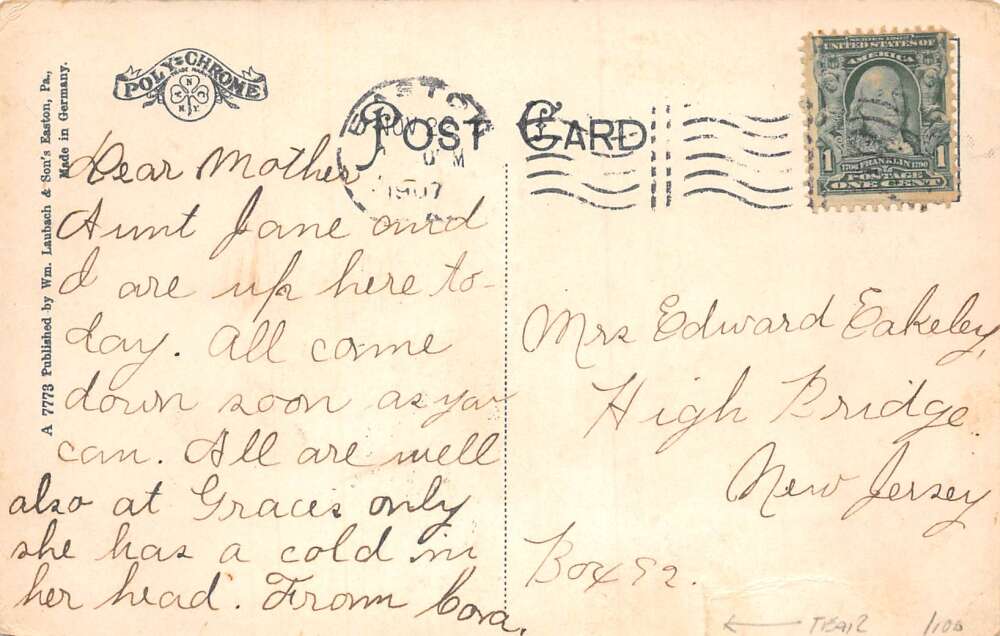 A 7773 Published by Wm. Laubach & Son's Easton, Pa.,
Made in Germany.
POLY-CHROME
TRADE MARK
A N C
N.Y.
POST CARD
EASTON
NOV
1907
SERIES 1902
UNITED STATES OF
AMERICA
1 1706 FRANKLIN 1790 1
POSTAGE
ONE CENT
Dear Mother
Aunt Jane and
I are up here to-
day. All come
down soon as you
can. All are well
also at Graces only
she has a cold in
her head. From Cora.
Mrs Edward Eakeley,
High Bridge.
New Jersey
Box 92.